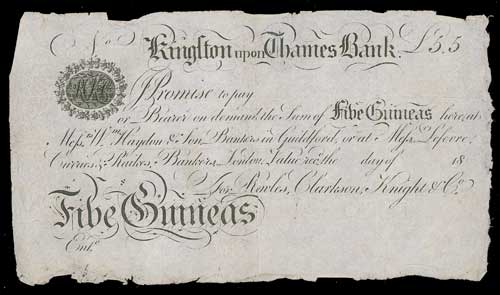 No Kingston upon Thames Bank. £5,5
RKC
I Promise to pay
or Bearer on demand the Sum of Five Guineas here, at
Messrs Wm Haydon & Son Bankers in Guildford, or at Messrs Lefevre,
Curries, & Raikes, Bankers London. Value recd the day of 18
For Rowles, Clarkson, Knight & Co.
Five Guineas
Entd